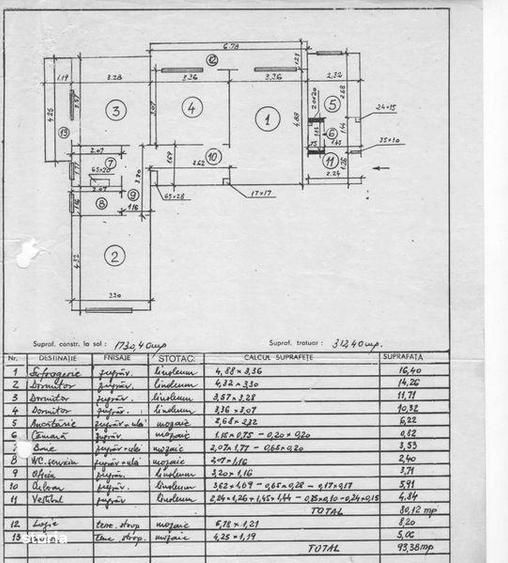 6.78
12
1.21
1.19
3.28
3.36
3.36
2.32
4.25
3.57
3
3.07
4
1
4.88
20x20
2.68
5
24x15
13
6
1.15
1.44
1.45
35x10
2.07
7
1.69
10
3.62
11
2.24
1.77
65x20
2.07
3.20
9
8
1.16
1.16
65x28
17x17
4.32
2
3.30
Supraf. constr. la sol : 1730,40 mp
Supraf. trotuar : 312,40 mp.
Nr. DESTINAȚIE FNISAJE STOTAC: CALCUL SUPRAFEȚE SUPRAFAȚA
1 Sufragerie zugrăv. linoleum 4,88 x 3,36 16,40
2 Dormitor zugrăv. linoleum 4,32 x 3,30 14,26
3 Dormitor zugrăv. linoleum 3,57 x 3,28 11,71
4 Dormitor zugrăv. linoleum 3,36 x 3,07 10,32
5 Bucătărie zugrăv + ulei mozaic 2,68 x 2,32 6,22
6 Cămară zugrăv. mozaic 1,15 x 0,75 - 0,20 x 0,20 0,82
7 Baie zugrăv + ulei mozaic 2,07 x 1,77 - 0,65 x 0,20 3,53
8 WC. serviciu zugrăv + ulei mozaic 2,07 x 1,16 2,40
9 Oficiu zugrăv. linoleum 3,20 x 1,16 3,71
10 zugrăv. linoleum 3,62 x 1,69 - 0,65 x 0,28 - 0,17 x 0,17 5,91
11 Vestibul zugrăv linoleum 2,24 x 1,26 + 1,45 x 1,44 - 0,35 x 0,10 - 0,24 x 0,15 4,84
TOTAL 80,12 mp
12 Logie tenc. strop. mozaic 6,78 x 1,21 8,20
13 tenc. strop. mozaic 4,25 x 1,19 5,06
TOTAL 93,38 mp
storia